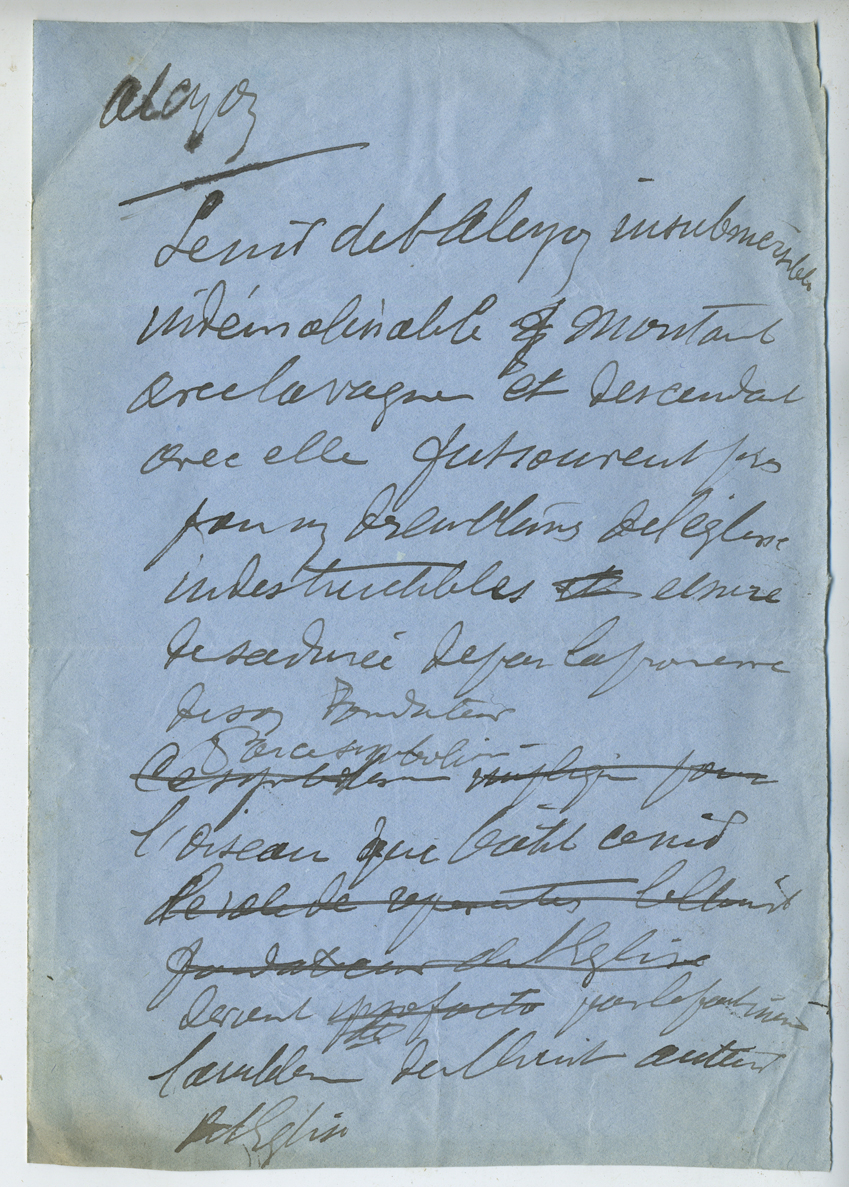 Alcyon
Le nid de l'Alcyon insubmersible
indémolissable montant
avec la vague et descendant
avec elle fut souvent pris
pour un des emblèmes de l'église
indestructibles et sure
de sa durée de par la promesse
de son Fondateur
Par ce symbolisme
Ce symbolisme pour
l'oiseau que bâtit ce nid
Le role de representer le Christ
fondateur de l'Eglise
devient ipso facto par le fait même
l'emblem du Christ auteur
de l'Eglise